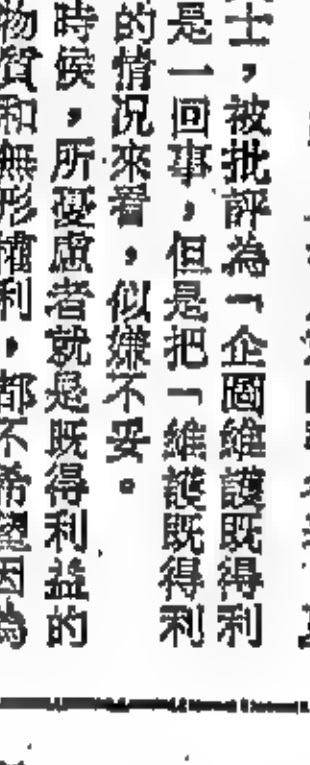 士，被批評為「企圖維護既得利
是一回事，但是把「維護既得利
的情況來看，似嫌不妥。
時候，所憂慮者就是既得利益的
物質和無形權利，都不希望因為